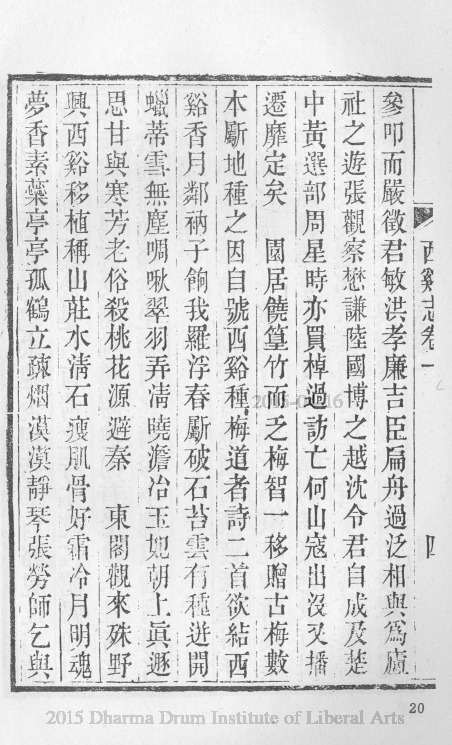 西谿志卷一
四
參叩而嚴徵君敏洪孝廉吉臣扁舟過泛相與爲廬
社之遊張觀察懋謙陸國博之越沈令君自成及楚
中黃選部周星時亦買棹過訪亡何山寇出沒又播
遷靡定矣　園居饒篁竹而乏梅智一移贈古梅數
本斸地種之因自號西谿種梅道者詩二首欲結西
谿香月鄰衲子餉我羅浮春斸破石苔雲有種迸開
蠟蒂雪無塵啁啾翠羽弄清曉澹冶玉妃朝上眞遯
思甘與寒芳老俗殺桃花源避秦　東閣觀來殊野
興西谿移植稱山莊水淸石瘦肌骨好霜冷月明魂
夢香素蘂亭亭孤鶴立疎烟漠漠靜琴張勞師乞與
2015 Dharma Drum Institute of Liberal Arts
20